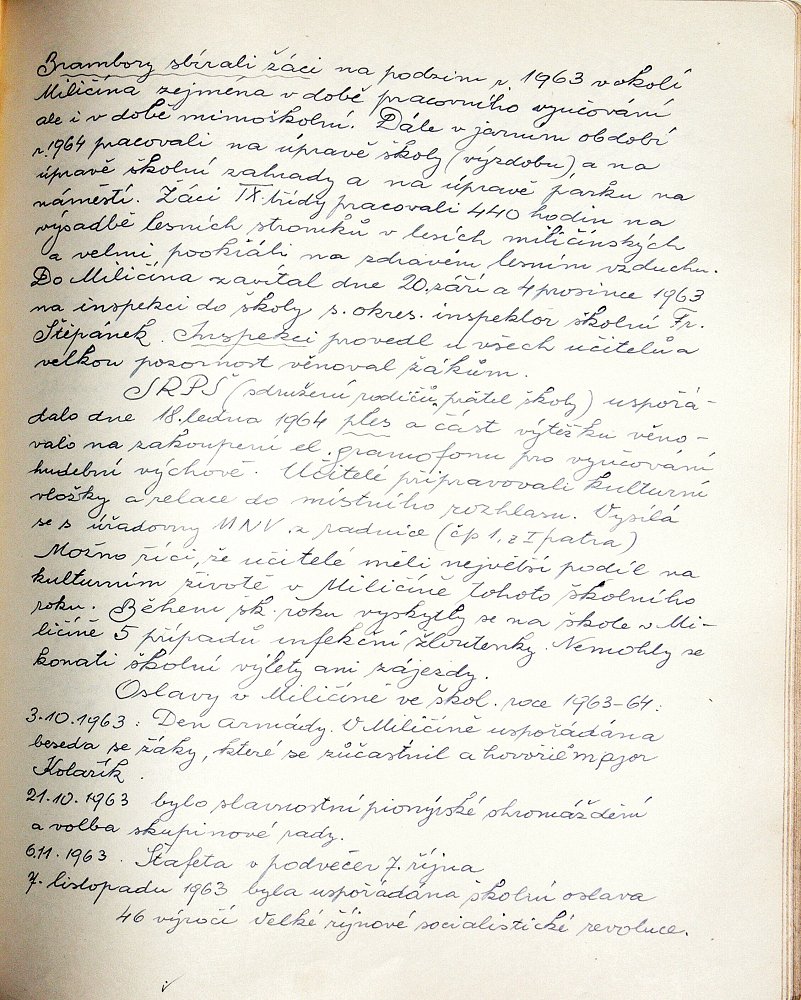 Brambory sbírali žáci na podzim r. 1963 v okolí
Miličína zejména v době pracovního vyučování
ale i v době mimoškolní. Dále v jarním období
r. 1964 pracovali na úpravě školy (výzdobu), a na
úpravě školní zahrady a na úpravě parku na
náměstí. Žáci IX. třídy pracovali 440 hodin na
výsadbě lesních stromků v lesích miličínských
a velmi pookřáli na zdravém lesním vzduchu.
Do Miličína zavítal dne 20. září a 4 prosince 1963
na inspekci do školy s. okres. inspektor školní Fr.
Štěpánek. Inspekci provedl u všech učitelů a
velkou pozornost věnoval žákům.
SRPŠ (sdružení rodičů, přátel školy) uspořá-
dalo dne 18. ledna 1964 ples a část výtěžku věno-
valo na zakoupení el. gramofonu pro vyučování
hudební výchově. Učitelé připravovali kulturní
vložky a relace do místního rozhlasu. Vysílá
se s úřadovny MNV. z radnice (čp 1, z I patra)
Možno říci, že učitelé měli největší podíl na
kulturním životě v Miličíně tohoto školního
roku. Během šk. roku vyskytly se na škole v Mi-
ličíně 5 případů infekční žloutenky. Nemohly se
konati školní výlety ani zájezdy.
Oslavy v Miličíně ve škol. roce 1963-64:
3.10.1963: Den armády. V Miličíně uspořádána
beseda se žáky, které se zúčastnil a hovořil major
Kolařík.
21.10.1963 bylo slavnostní pionýrské shromáždění
a volba skupinové rady.
6.11.1963. Štafeta v podvečer 7. října
7. listopadu 1963 byla uspořádána školní oslava
46 výročí Velké říjnové socialistické revoluce.